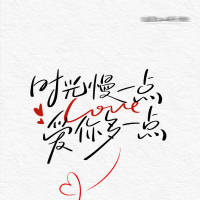 时光慢一点
Love
爱你多一点